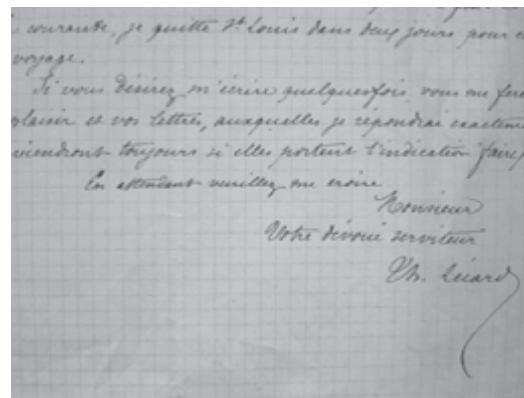 courante, je quitte St Louis dans deux jours pour c
voyage.
Si vous désirez m'écrire quelquesfois vous me fere
plaisir et vos lettres, auxquelles je répondrai exacteme
viendront toujours si elles portent l'indication faire
En attendant veuillez me croire
Monsieur
Votre dévoué serviteur
Th. Lécard